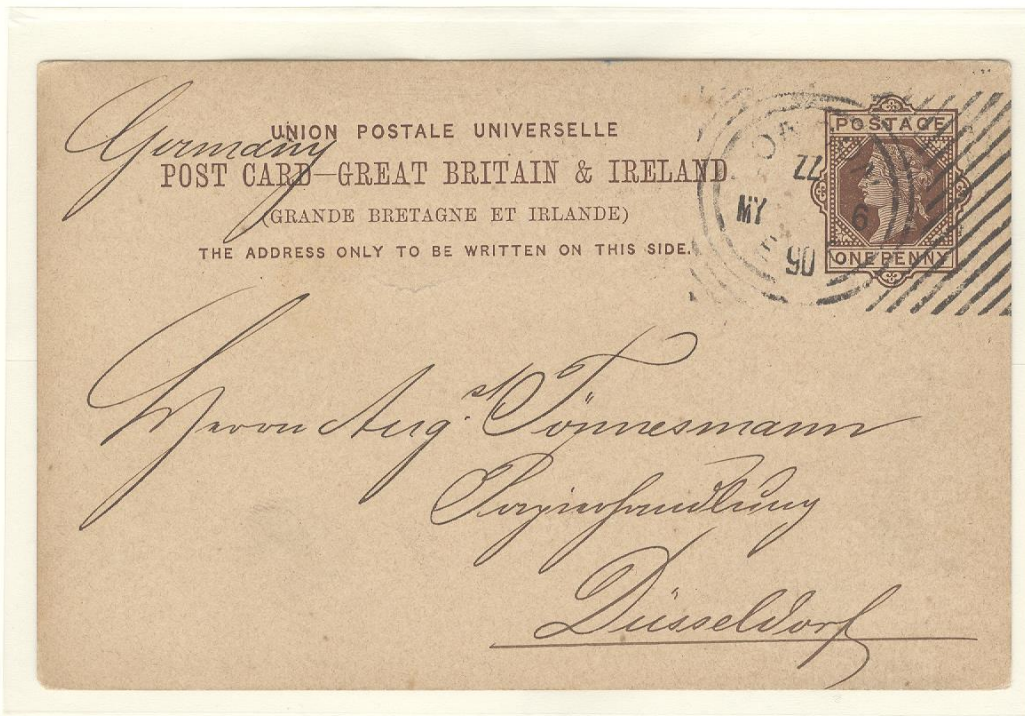 Germany
UNION POSTALE UNIVERSELLE
POST CARD–GREAT BRITAIN & IRELAND
(GRANDE BRETAGNE ET IRLANDE)
THE ADDRESS ONLY TO BE WRITTEN ON THIS SIDE.
POSTAGE
ONE PENNY
ZZ
MY 6
90
Herrn Aug. Tönnesmann
Papierhandlung
Düsseldorf